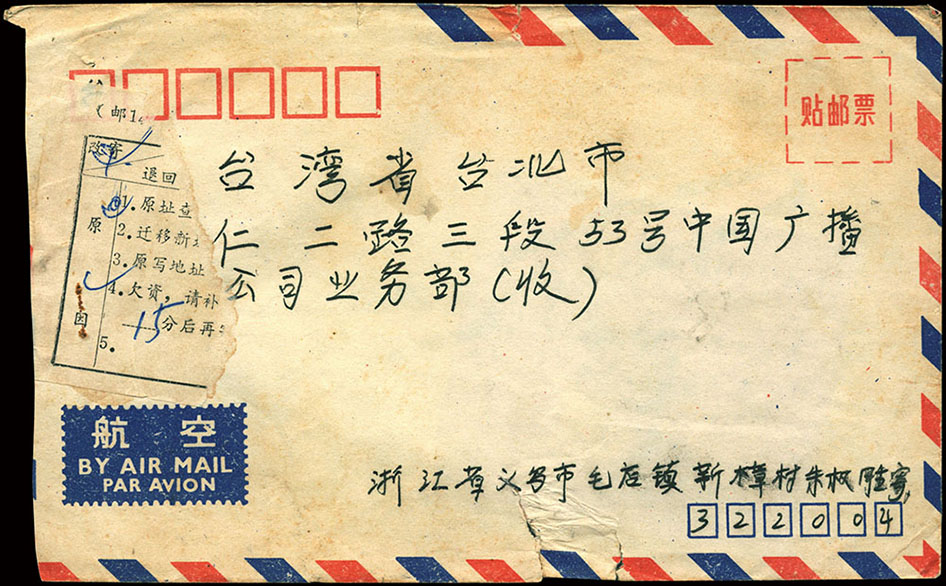 (邮1
贴邮票
改寄
退回
原因
1.原址查
2.迁移新
3.原写地址
4.欠资,请补
15分后再
5.
台湾省台北市
仁二路三段53号中国广播
公司业务部(收)
航空
BY AIR MAIL
PAR AVION
浙江省义乌市毛店镇新樟村朱权雕寄
322004